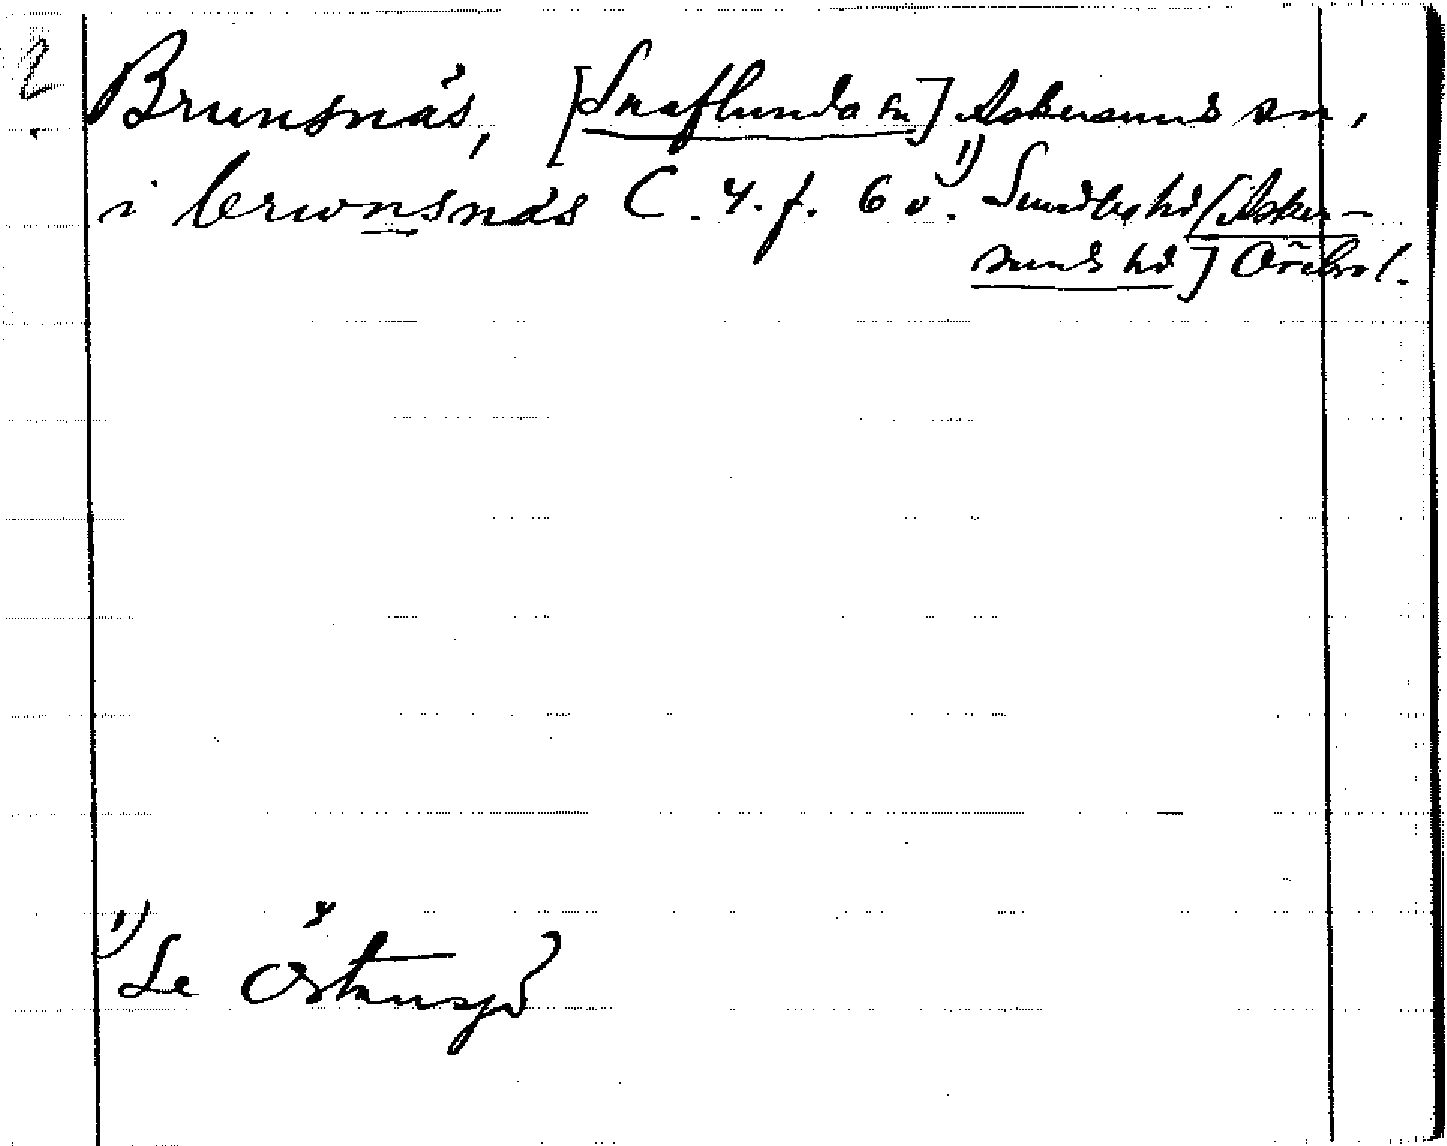 Brunsnäs, [Snaflunda sn] Askersunds sn,
i brwonsnäs C. 4. f. 6 v. 1) Sundbo hd [Asker-
sunds hd] Örebro l.
1) Se Östansjö